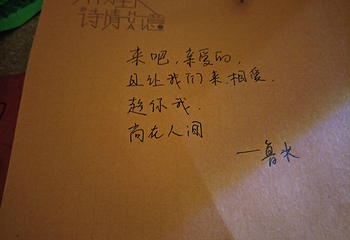 诗情如意
来吧,亲爱的,
且让我们来相爱.
趁你我.
尚在人间
—鲁米